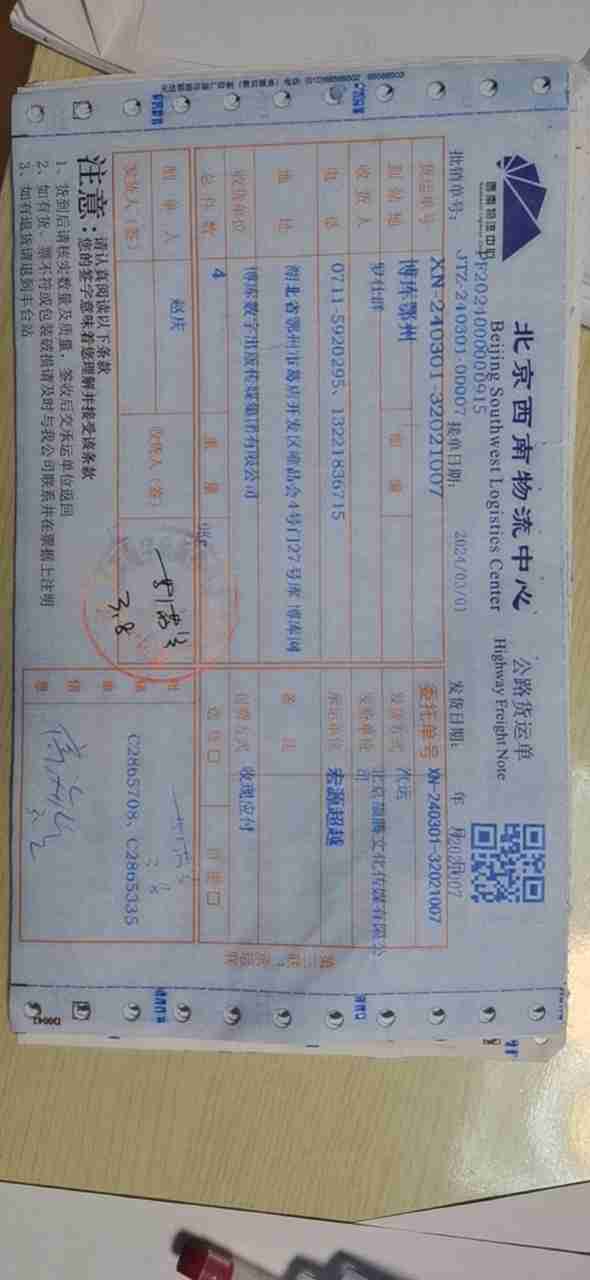 北京西南物流中心
公路货运单
Beijing Southwest Logistics Center
Highway Freight Note
西南物流中心
PF2024000000915
批销单号:
JTZ-240301-00007
接单日期:
2024/03/01
发货日期:
年 月
货运单号
XN-240301-32021007
委托单号
XN-240301-32021007
到站地
博库鄂州
邮编
发货方式
汽运
收货人
罗仕群
发货单位
北京韶腾文化传媒有限公
司
电话
0711-5920295、13221836715
承运单位
宏源超越
地址
湖北省鄂州市葛店开发区唯品会4号门27号库 博库网
备注
收货单位
博库数字出版传媒集团有限公司
付费方式
收现应付
总件数
4
重量
制单人
赵庆
发货人(签)
收货人(签)
3.8
C2865708、C2865335
3.8
注意:
请认真阅读以下条款
您的签字意味着您理解并接受该条款
1、货到后请核实数量及质量,签收后交承运单位返回
2、如有货、票不符或包装破损请及时与我公司联系并在票据上注明
3、如有退货请退到丰台站